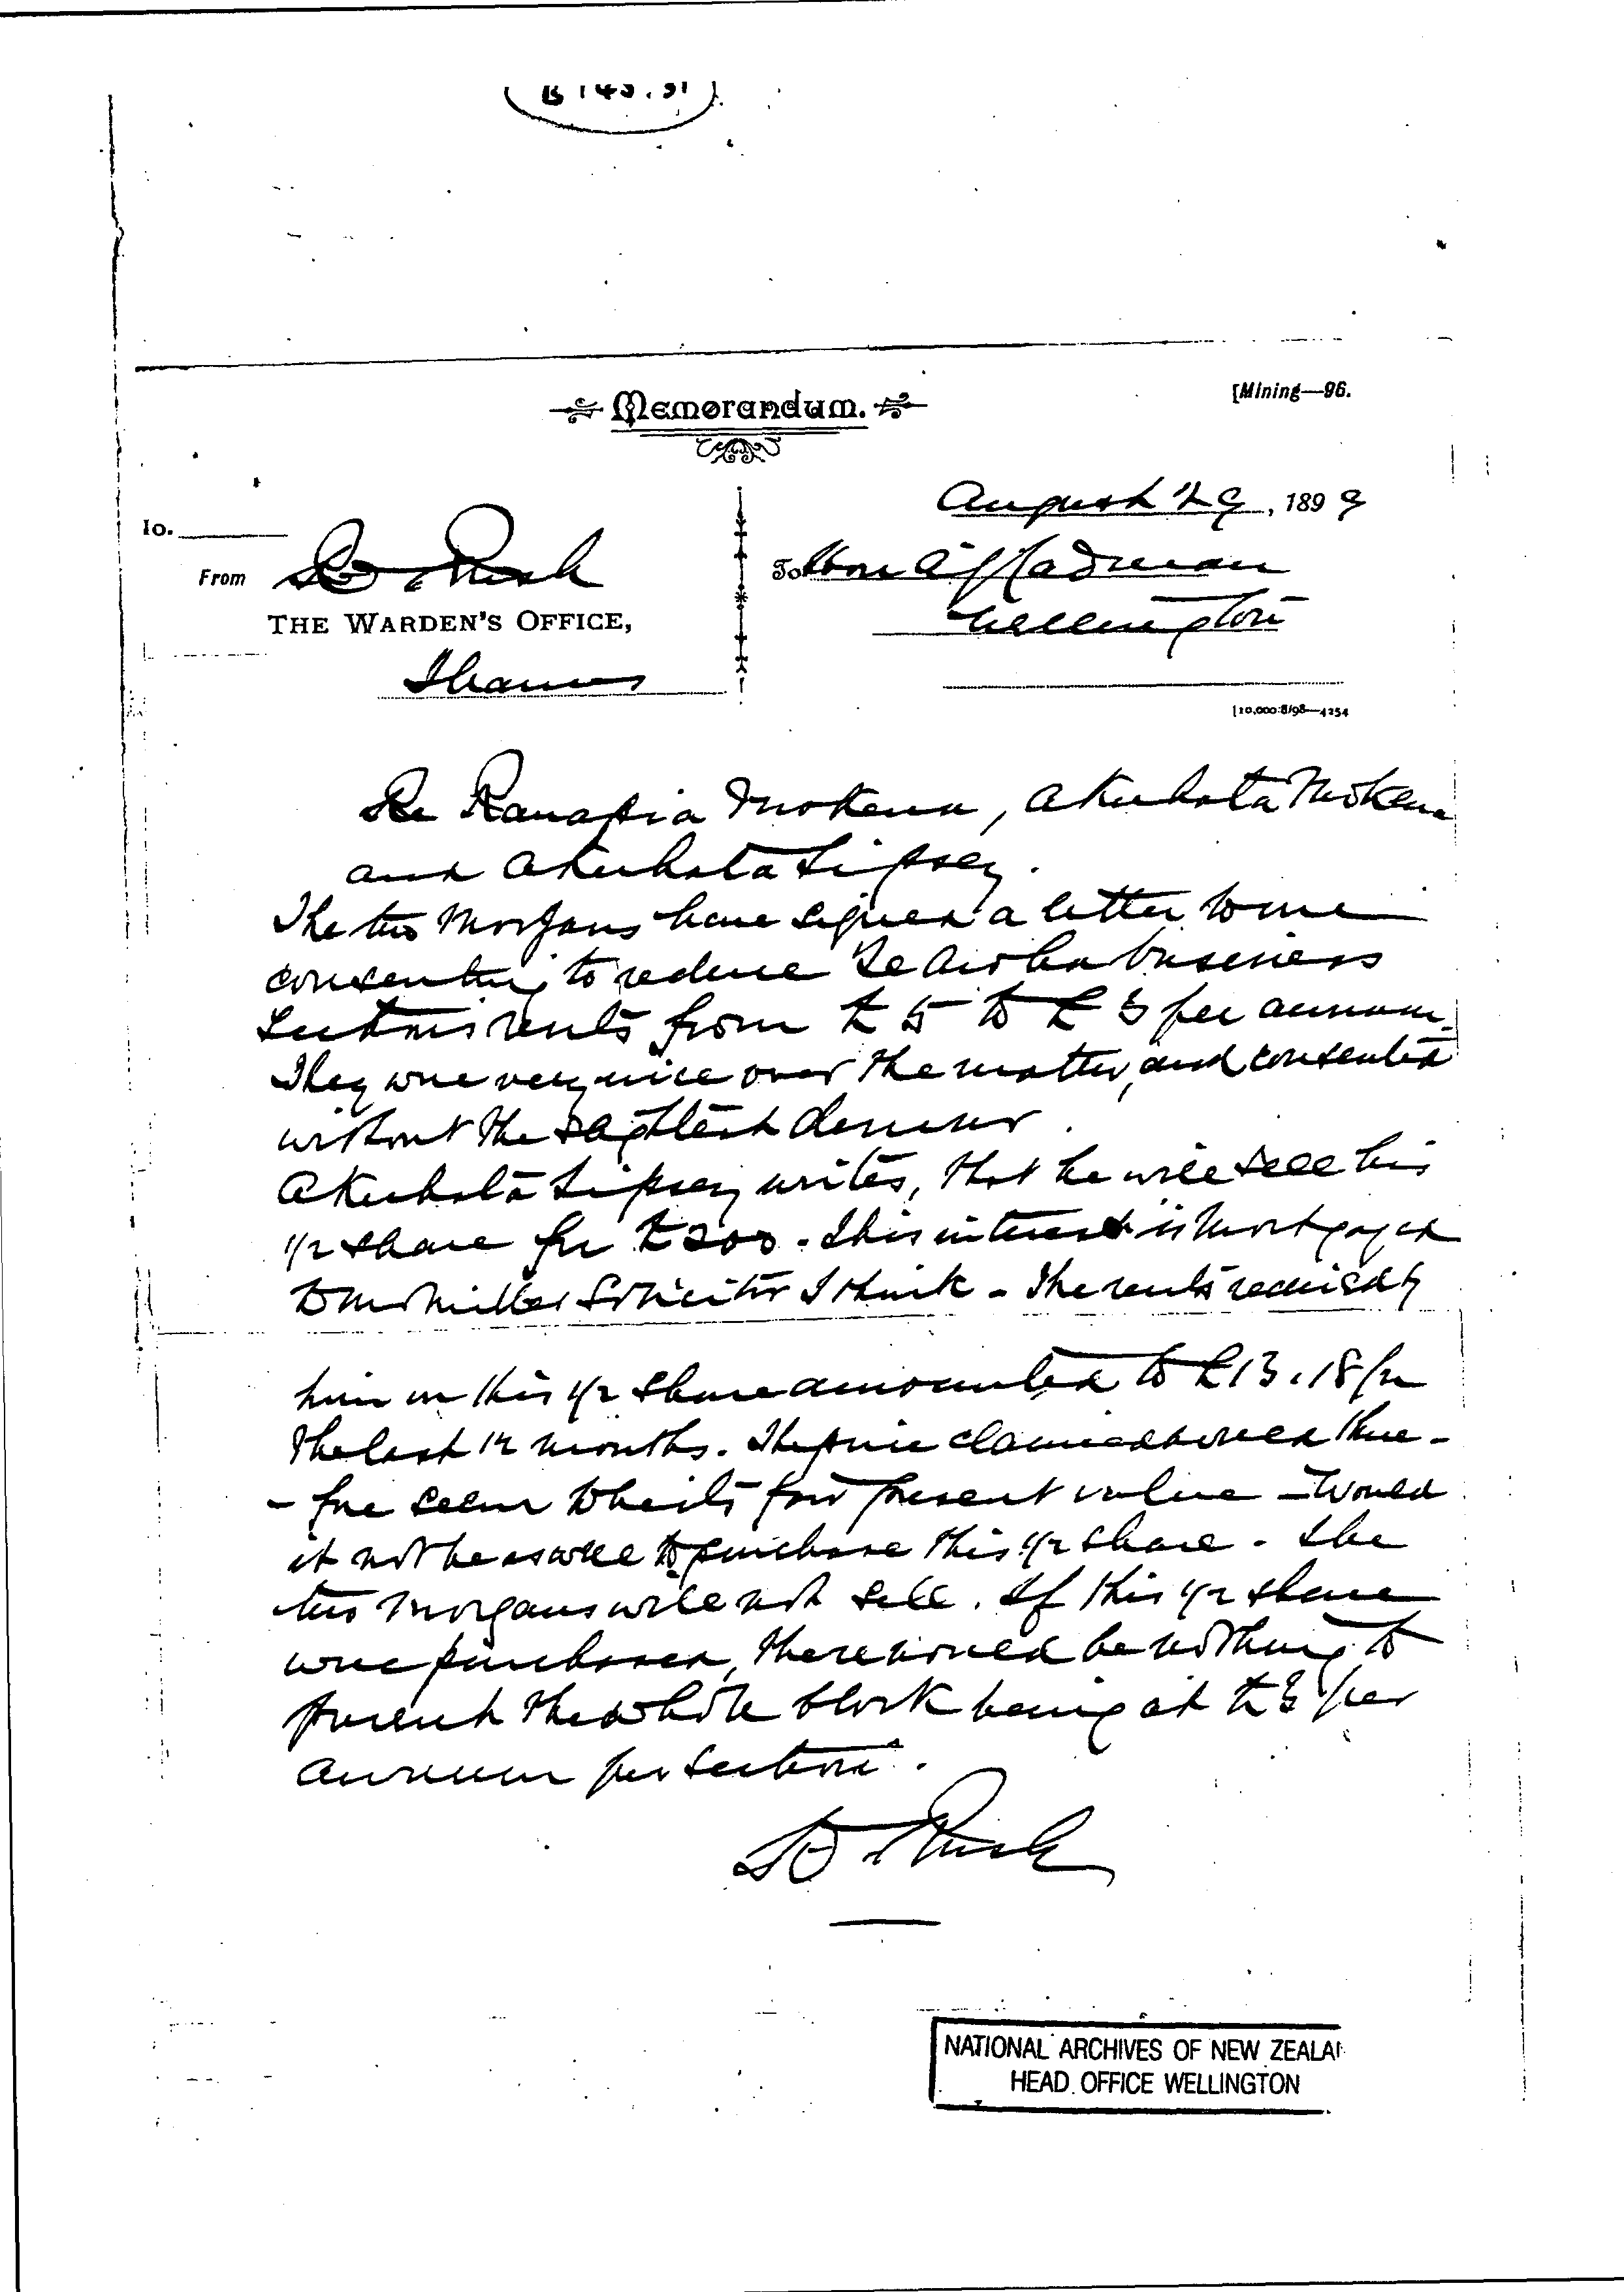 B 143.91
[Mining—96.
Memorandum.
August 29, 1899
To.
From
To Hon A J Cadman
THE WARDEN'S OFFICE,
Wellington
Thames
[10,000:8/98—4254
Re Ranapia Mokena, Akuhata Mokena
and Akuhata Lipsey.
The two Morgans have signed a letter to me
consenting to reduce Te Aroha business
sections rents from £5 to £3 per annum.
They were very nice over the matter, and consented
without the slightest demur.
Akuhata Lipsey writes, that he will sell his
1/2 share for £200. This interest is Mortgaged
to Mr Miller Solicitor I think - The rents received by
him on this 1/2 share amounted to £13.18/ in
the last 12 months. The price claimed would there-
- fore seem to be its fair present value - Would
it not be as well to purchase this 1/2 share. The
two Morgans will not sell. If this 1/2 share
were purchased, there would be nothing to
prevent the whole block being at £3 per
annum per section.
NATIONAL ARCHIVES OF NEW ZEALA
HEAD OFFICE WELLINGTON